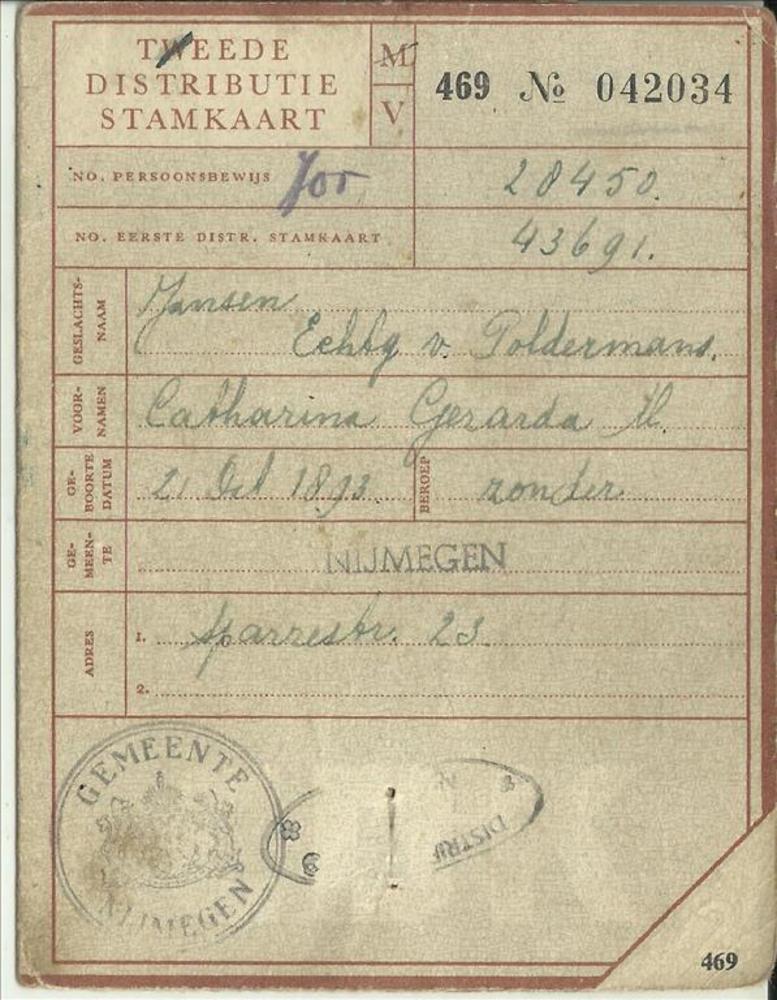 TWEEDE
DISTRIBUTIE
STAMKAART
M
V
469 № 042034
NO. PERSOONSBEWIJS
28450.
NO. EERSTE DISTR. STAMKAART
43691.
GESLACHTS-
NAAM
Jansen
Echtg v. Poldermans.
VOOR-
NAMEN
Catharina Gerarda M.
GE-
BOORTE
DATUM
21 Oct 1893
BEROEP
zonder
GE-
MEEN-
TE
NIJMEGEN
ADRES
1. Sparrestr. 23
2.
GEMEENTE
NIJMEGEN
DISTRI
469